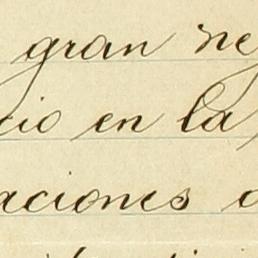 gran ne
cio en la
aciones